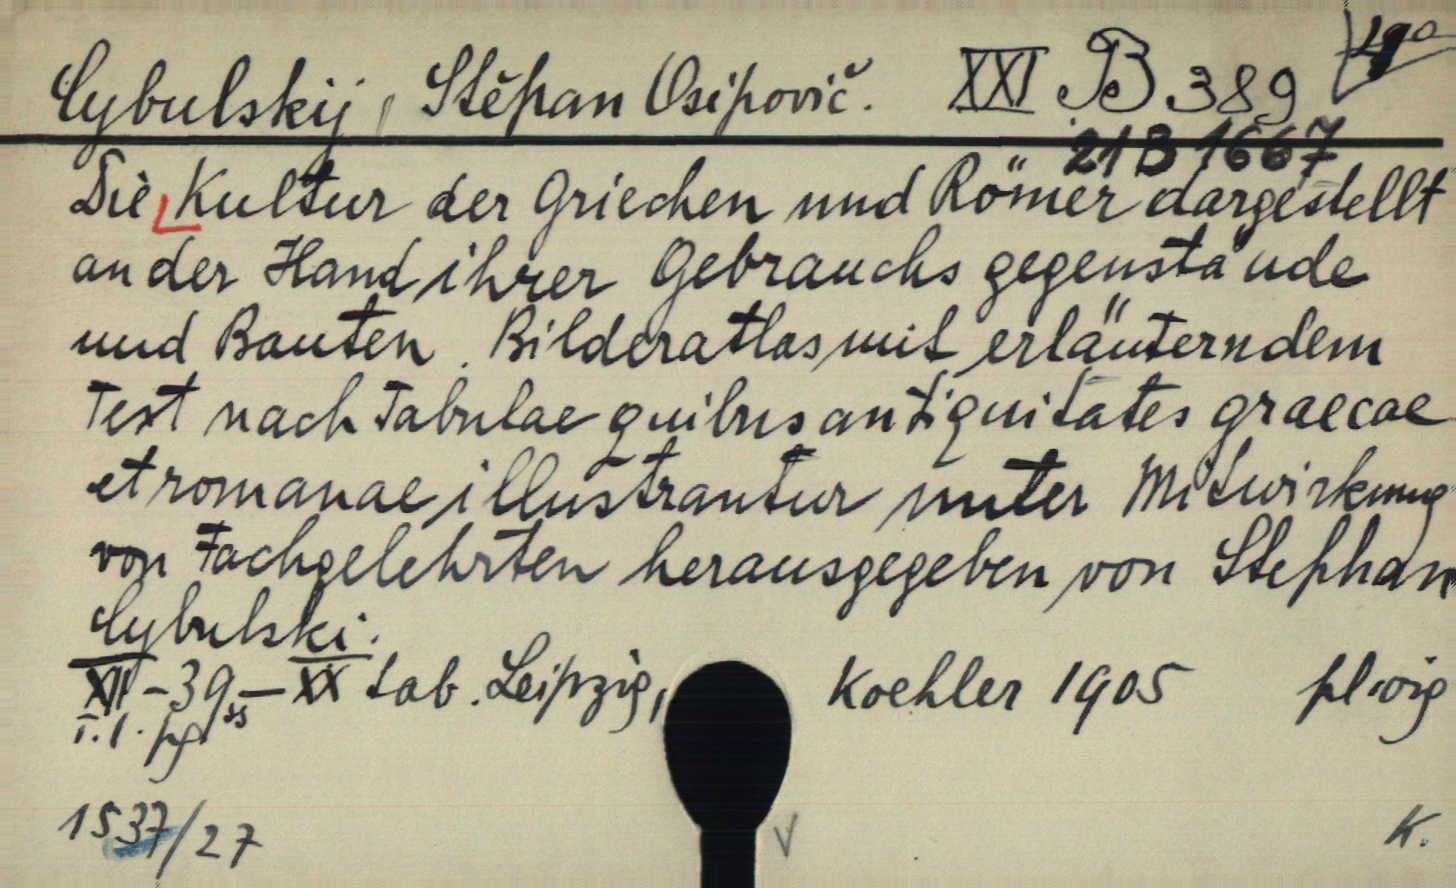 Cybulskij, Stěpan Osipovič. XXI B 389
21 B 1667
Die Kultur der Griechen und Römer dargestellt
an der Hand ihrer Gebrauchsgegenstände
und Bauten. Bilderatlas mit erläuterndem
Text nach Tabulae quibus antiquitates graecae
et romanae illustrantur unter Mitwirkung
von Fachgelehrten herausgegeben von Stephan
Cybulski.
XII - 39 - XX tab. Leipzig, Koehler 1905
1537/27 K.